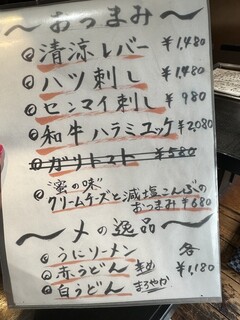 〜おつまみ〜
◎清涼レバー ¥1,480
◎ハツ刺し ¥1,480
◎センマイ刺し ¥980
◎和牛ハラミユッケ ¥2,080
◎ガリトマト ¥580
◎"蜜の味"
クリームチーズと減塩こんぶの
おつまみ ¥680
〜〆の逸品〜
◎うにソーメン 各
◎赤うどん ¥1,180
◎白うどん まろやか